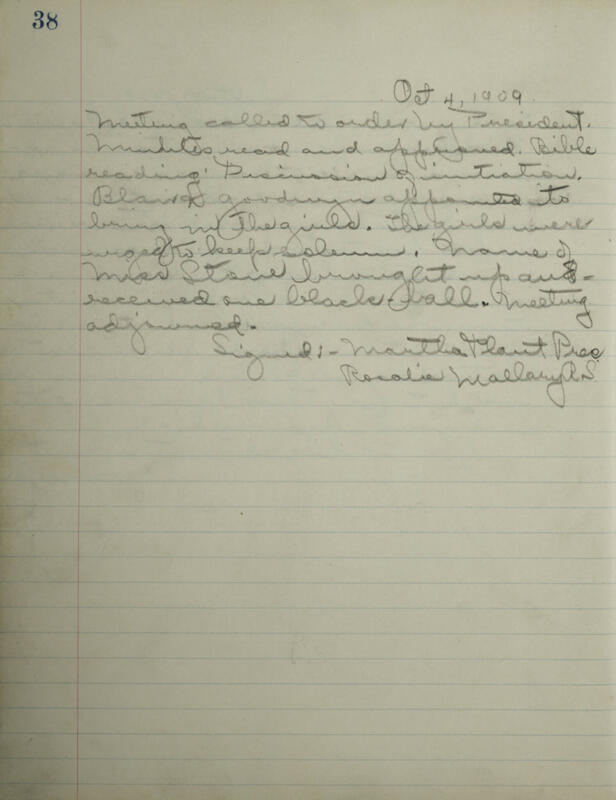 38
Oct 4, 1909.
Meeting called to order by President.
Minutes read and approved. Bible
reading. Discussion of initiation.
Blair & Goodwyn appointed to
bring in the girls. The girls were
urged to keep solemn. Name of
Miss Stone brought up and-
received one black-ball. Meeting
adjourned.
Signed:- Martha Plant Pres
Rosalie Mallary R.S.